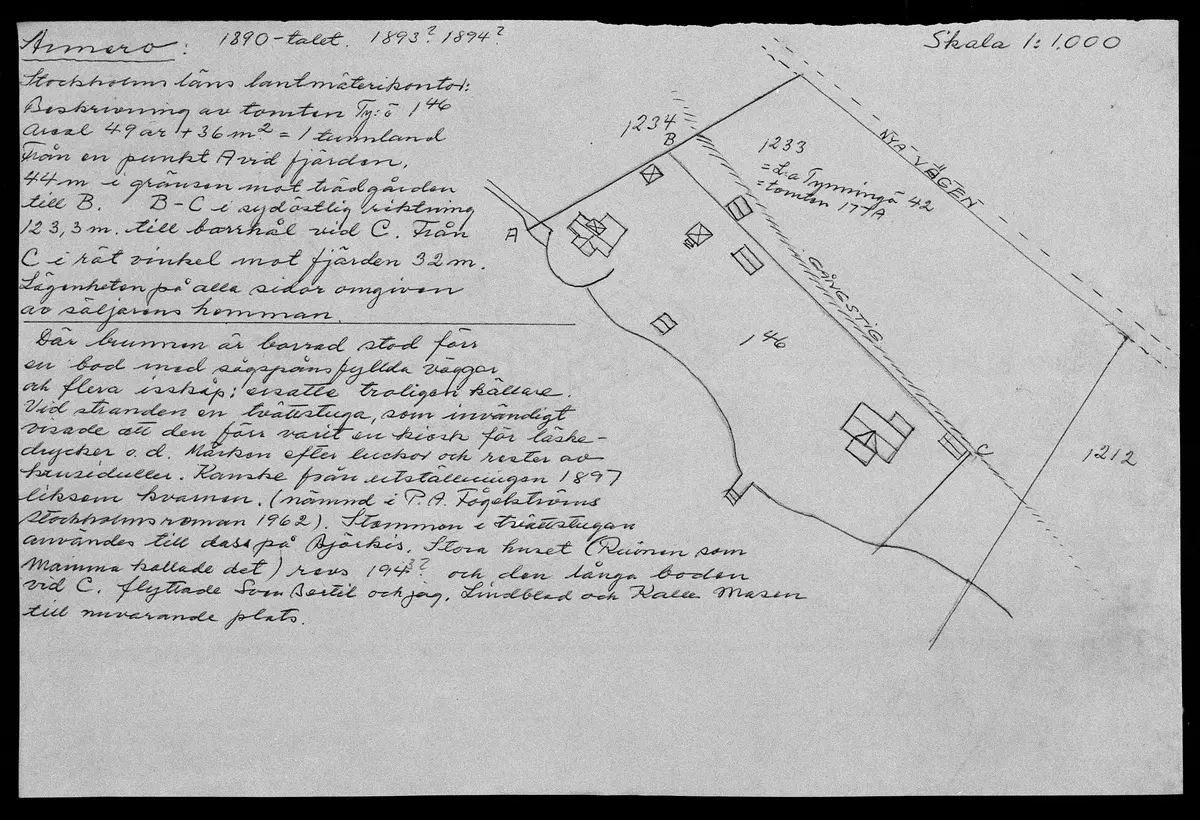 Armero: 1890-talet. 1893? 1894?
Skala 1:1,000
Stockholms läns lantmäterikontor:
Beskrivning av tomten Ty:ö 1 46
Areal 49 ar + 36 m2 = 1 tunnland
Från en punkt A vid fjärden,
44 m i gränsen mot trädgården
till B. B-C i sydöstlig riktning
123,3 m. till borrhål vid C. Från
C i rät vinkel mot fjärden 32 m.
Lägenheten på alla sidor omgiven
av säljarens hemman.
Där brunnen är borrad stod förr
en bod med sågspånsfyllda väggar
och flera isskåp; ersatte troligen källare.
Vid stranden en tvättstuga, som invändigt
visade att den förr varit en kiosk för läske-
drycker o.d. Märken efter luckor och rester av
krusiduller. Kanske från utställningen 1897
liksom kvarnen. (nämnd i P.A. Fogelströms
Stockholmsroman 1962). Stommen i tvättstugan
användes till dass på Björkis. Stora huset (Ruinen som
Mamma kallade det) revs 1943? och den långa boden
vid C. flyttade Sven Bertil och jag, Lindblad och Kalle Masen
till nuvarande plats.
1234
B
1233
= L:a Tynningö 42
= tomten 177A
NYA VÄGEN
A
GÅNGSTIG
1 46
C
1212